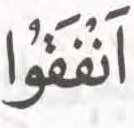 اَنْفَقُوا